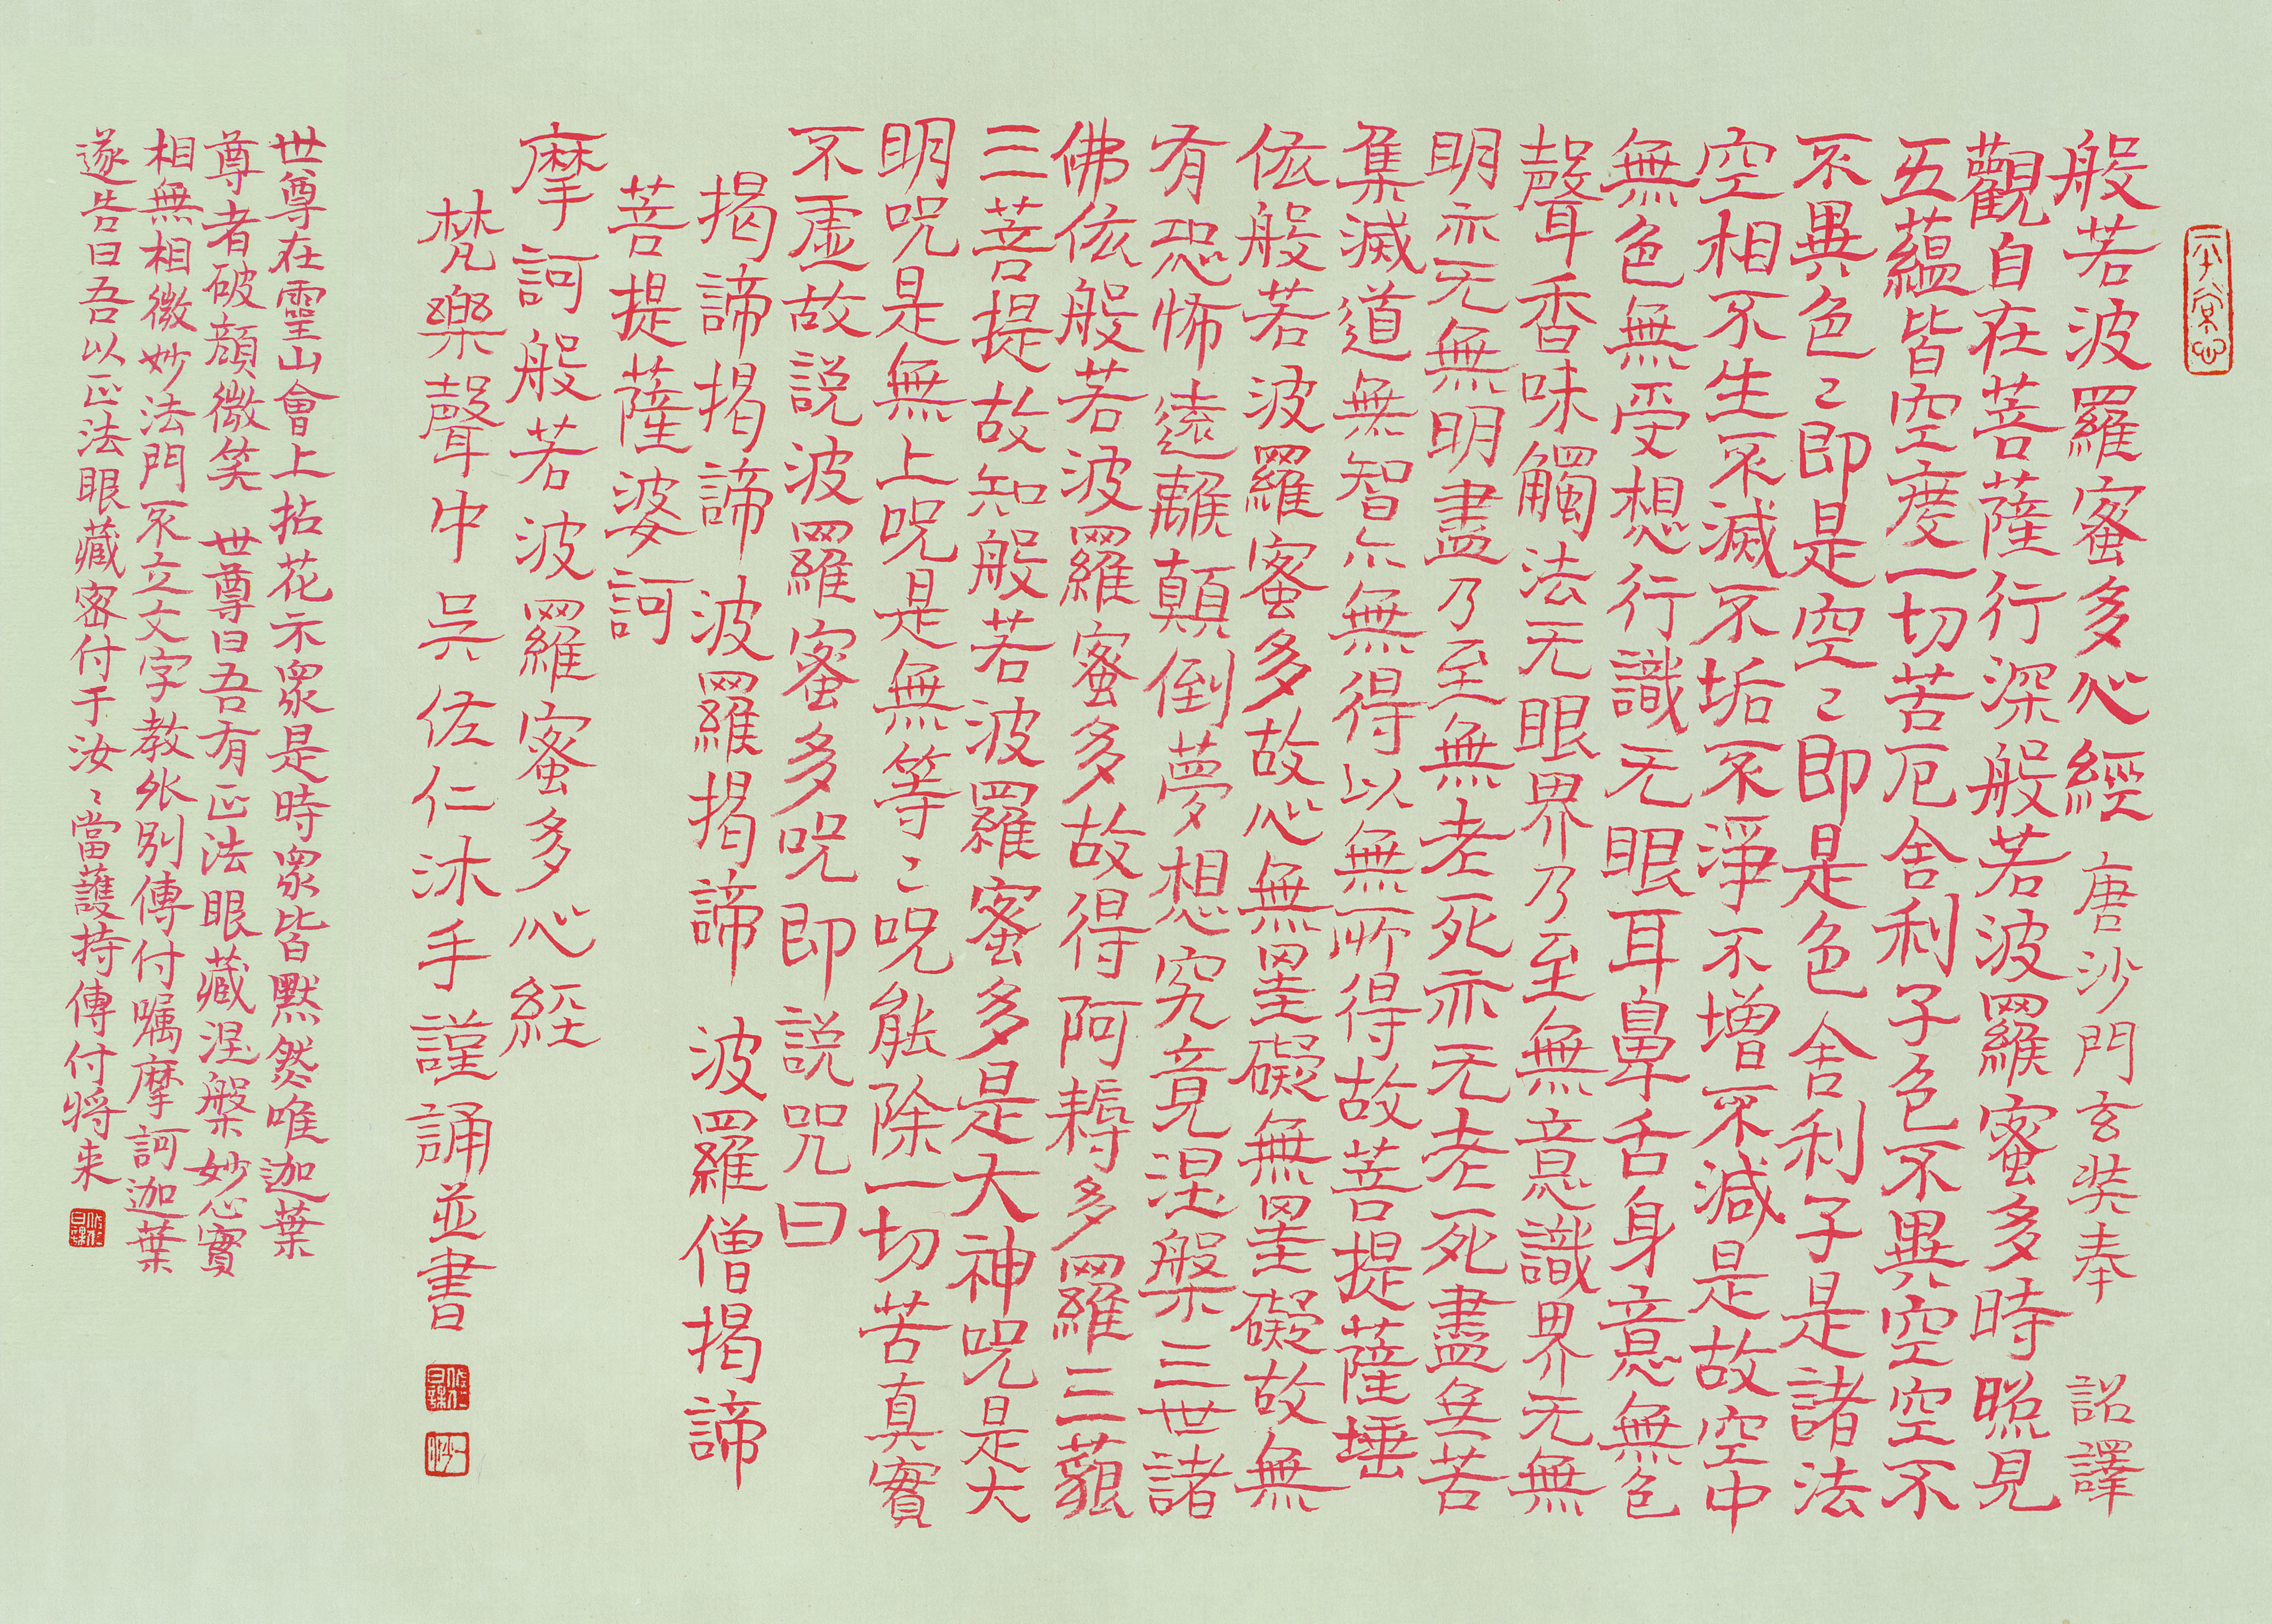 般若波羅蜜多心經 唐沙門玄奘奉 詔譯
觀自在菩薩行深般若波羅蜜多時照見
五蘊皆空度一切苦厄舍利子色不異空空不
不異色〻即是空〻即是色舍利子是諸法
空相不生不滅不垢不淨不增不減是故空中
無色無受想行識无眼耳鼻舌身意無色
聲香味觸法无眼界乃至無意識界无無
明亦无無明盡乃至無老死亦无老死盡無苦
集滅道無智亦無得以無所得故菩提薩埵
依般若波羅蜜多故心無罣礙無罣礙故無
有恐怖遠離顛倒夢想究竟涅槃三世諸
佛依般若波羅蜜多故得阿耨多羅三藐
三菩提故知般若波羅蜜多是大神咒是大
明咒是無上咒是無等〻咒能除一切苦真實
不虛故說波羅蜜多咒即說咒曰
揭諦揭諦 波羅揭諦 波羅僧揭諦
菩提薩婆訶
摩訶般若波羅蜜多心經
梵樂聲中吳佐仁沐手謹誦並書
世尊在靈山會上拈花示眾是時眾皆默然唯迦葉
尊者破顏微笑 世尊曰吾有正法眼藏涅槃妙心實
相無相微妙法門不立文字教外別傳付嘱摩訶迦葉
遂告曰吾以正法眼藏密付于汝〻當護持傳付將来